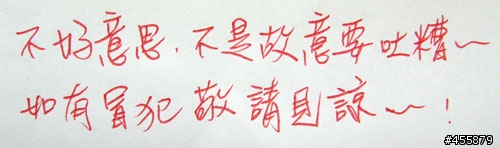 不好意思，不是故意要吐糟～
如有冒犯敬請見諒～！
#455879